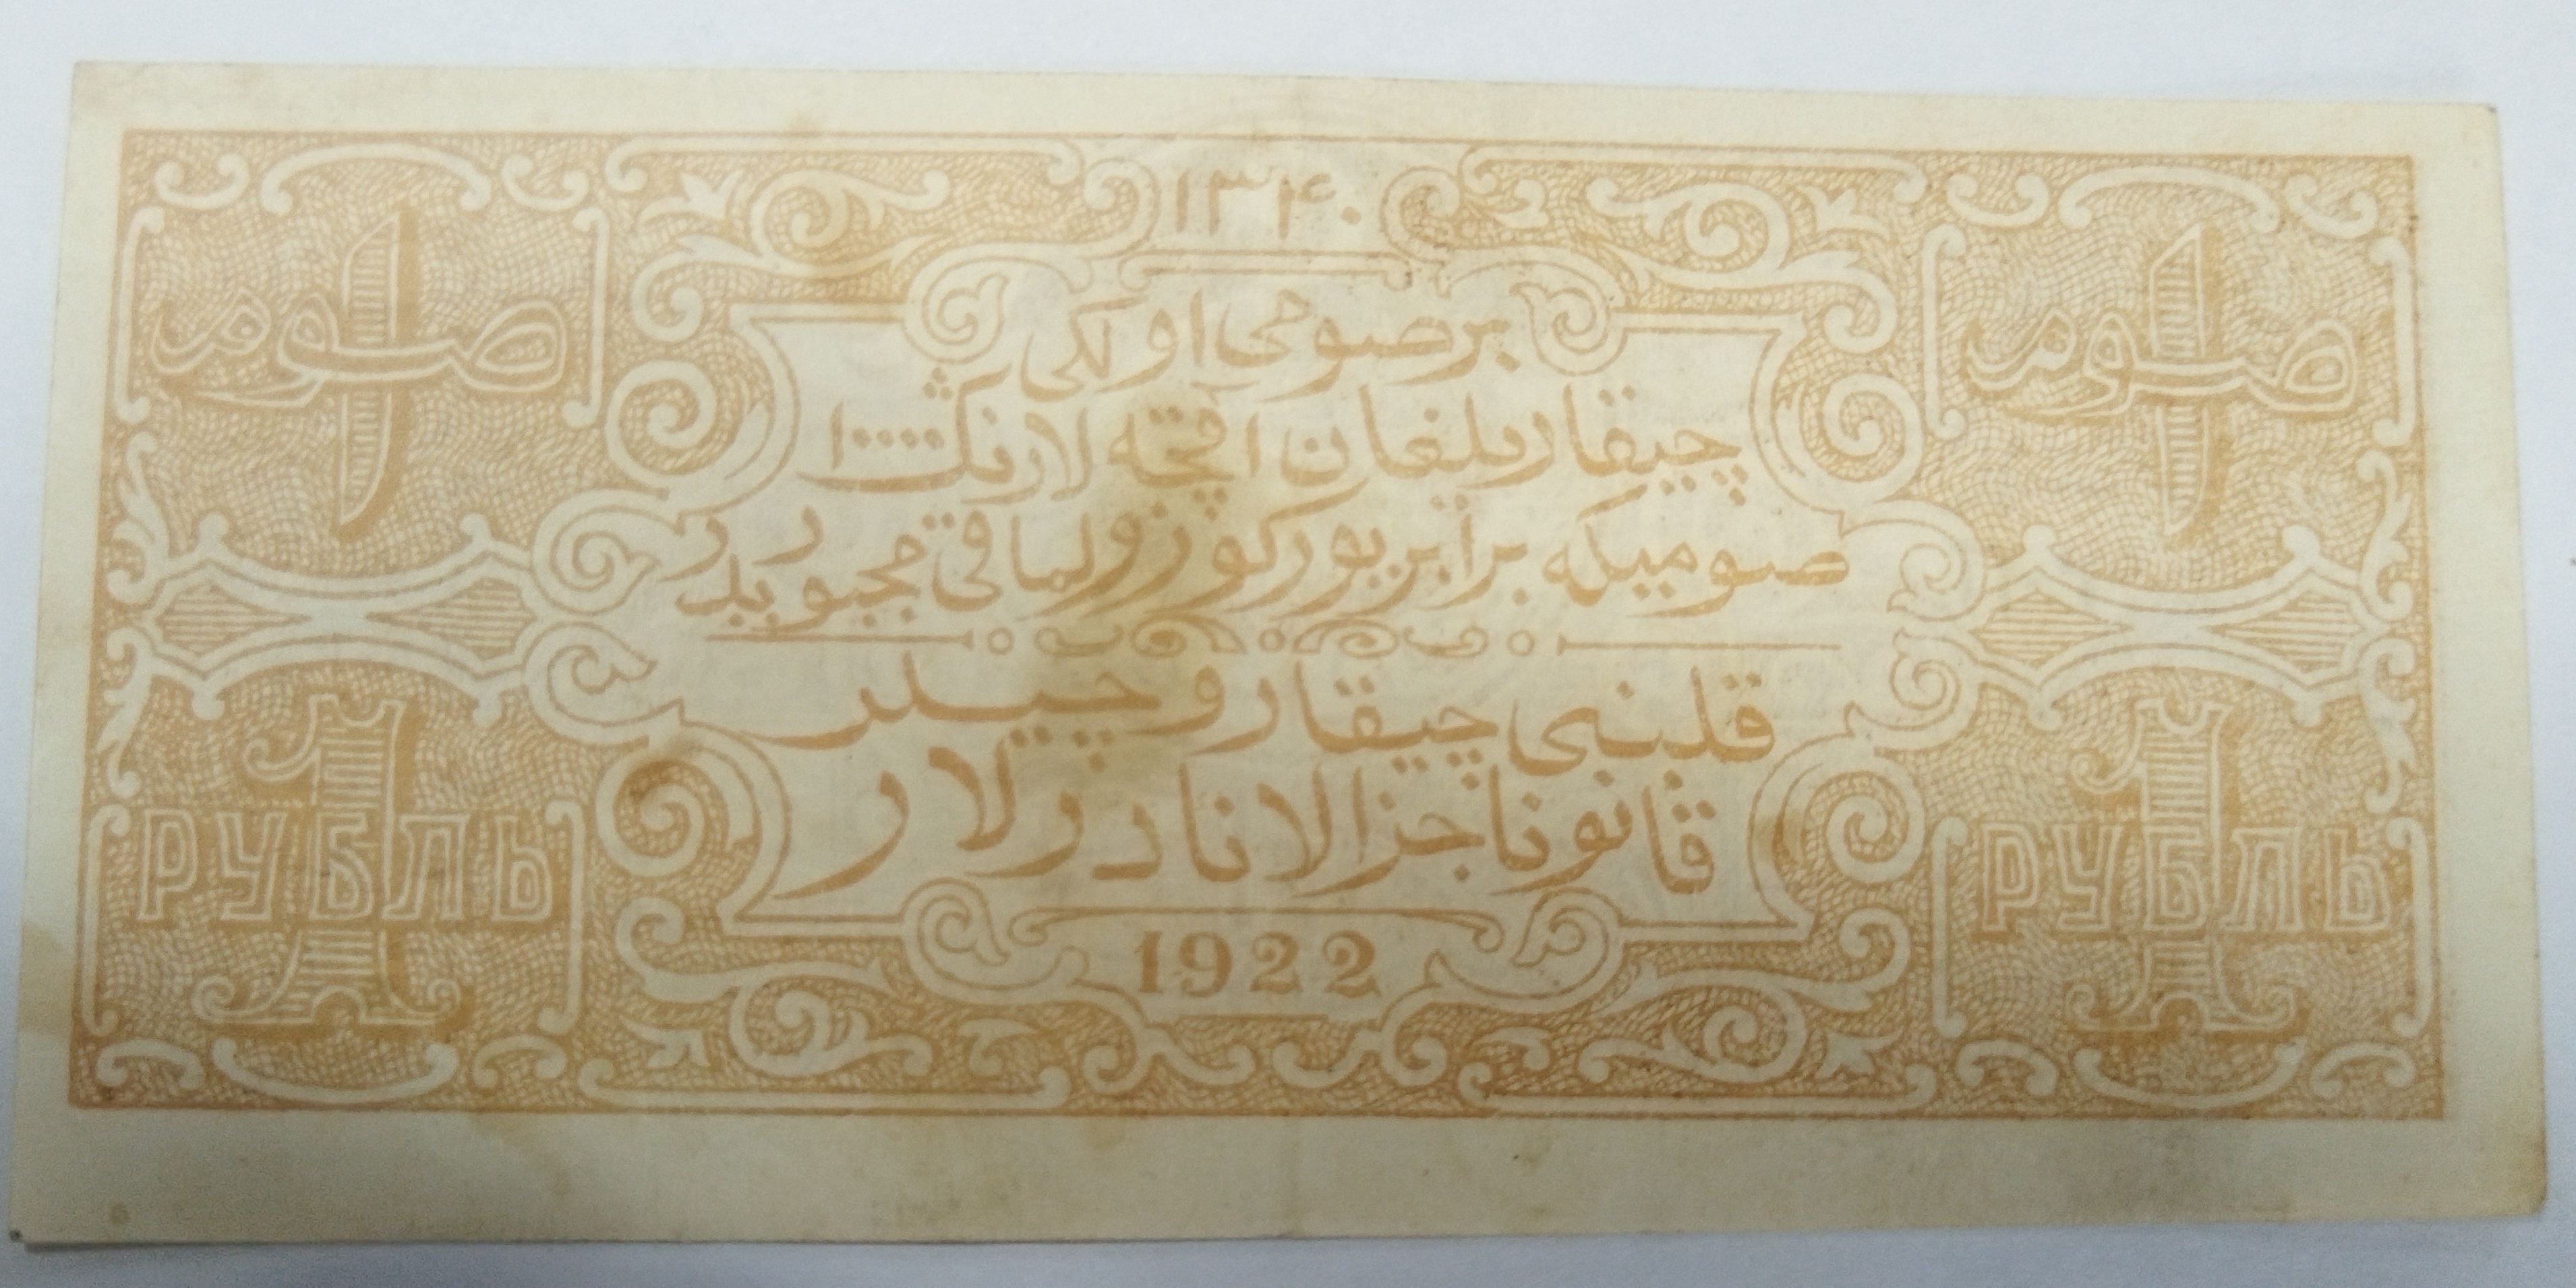 ۱۳۴۰
۱ صوم
۱ صوم
بر صومی اولکی
چیقاریلغان اقچه لارنڭ ۱۰۰۰۰
صومیکه برابر یورکوزولماقی مجبوریدر
قلبنی چیقاروچیلر
قانونا جزالانادرلار
1 РУБЛЬ
1 РУБЛЬ
1922